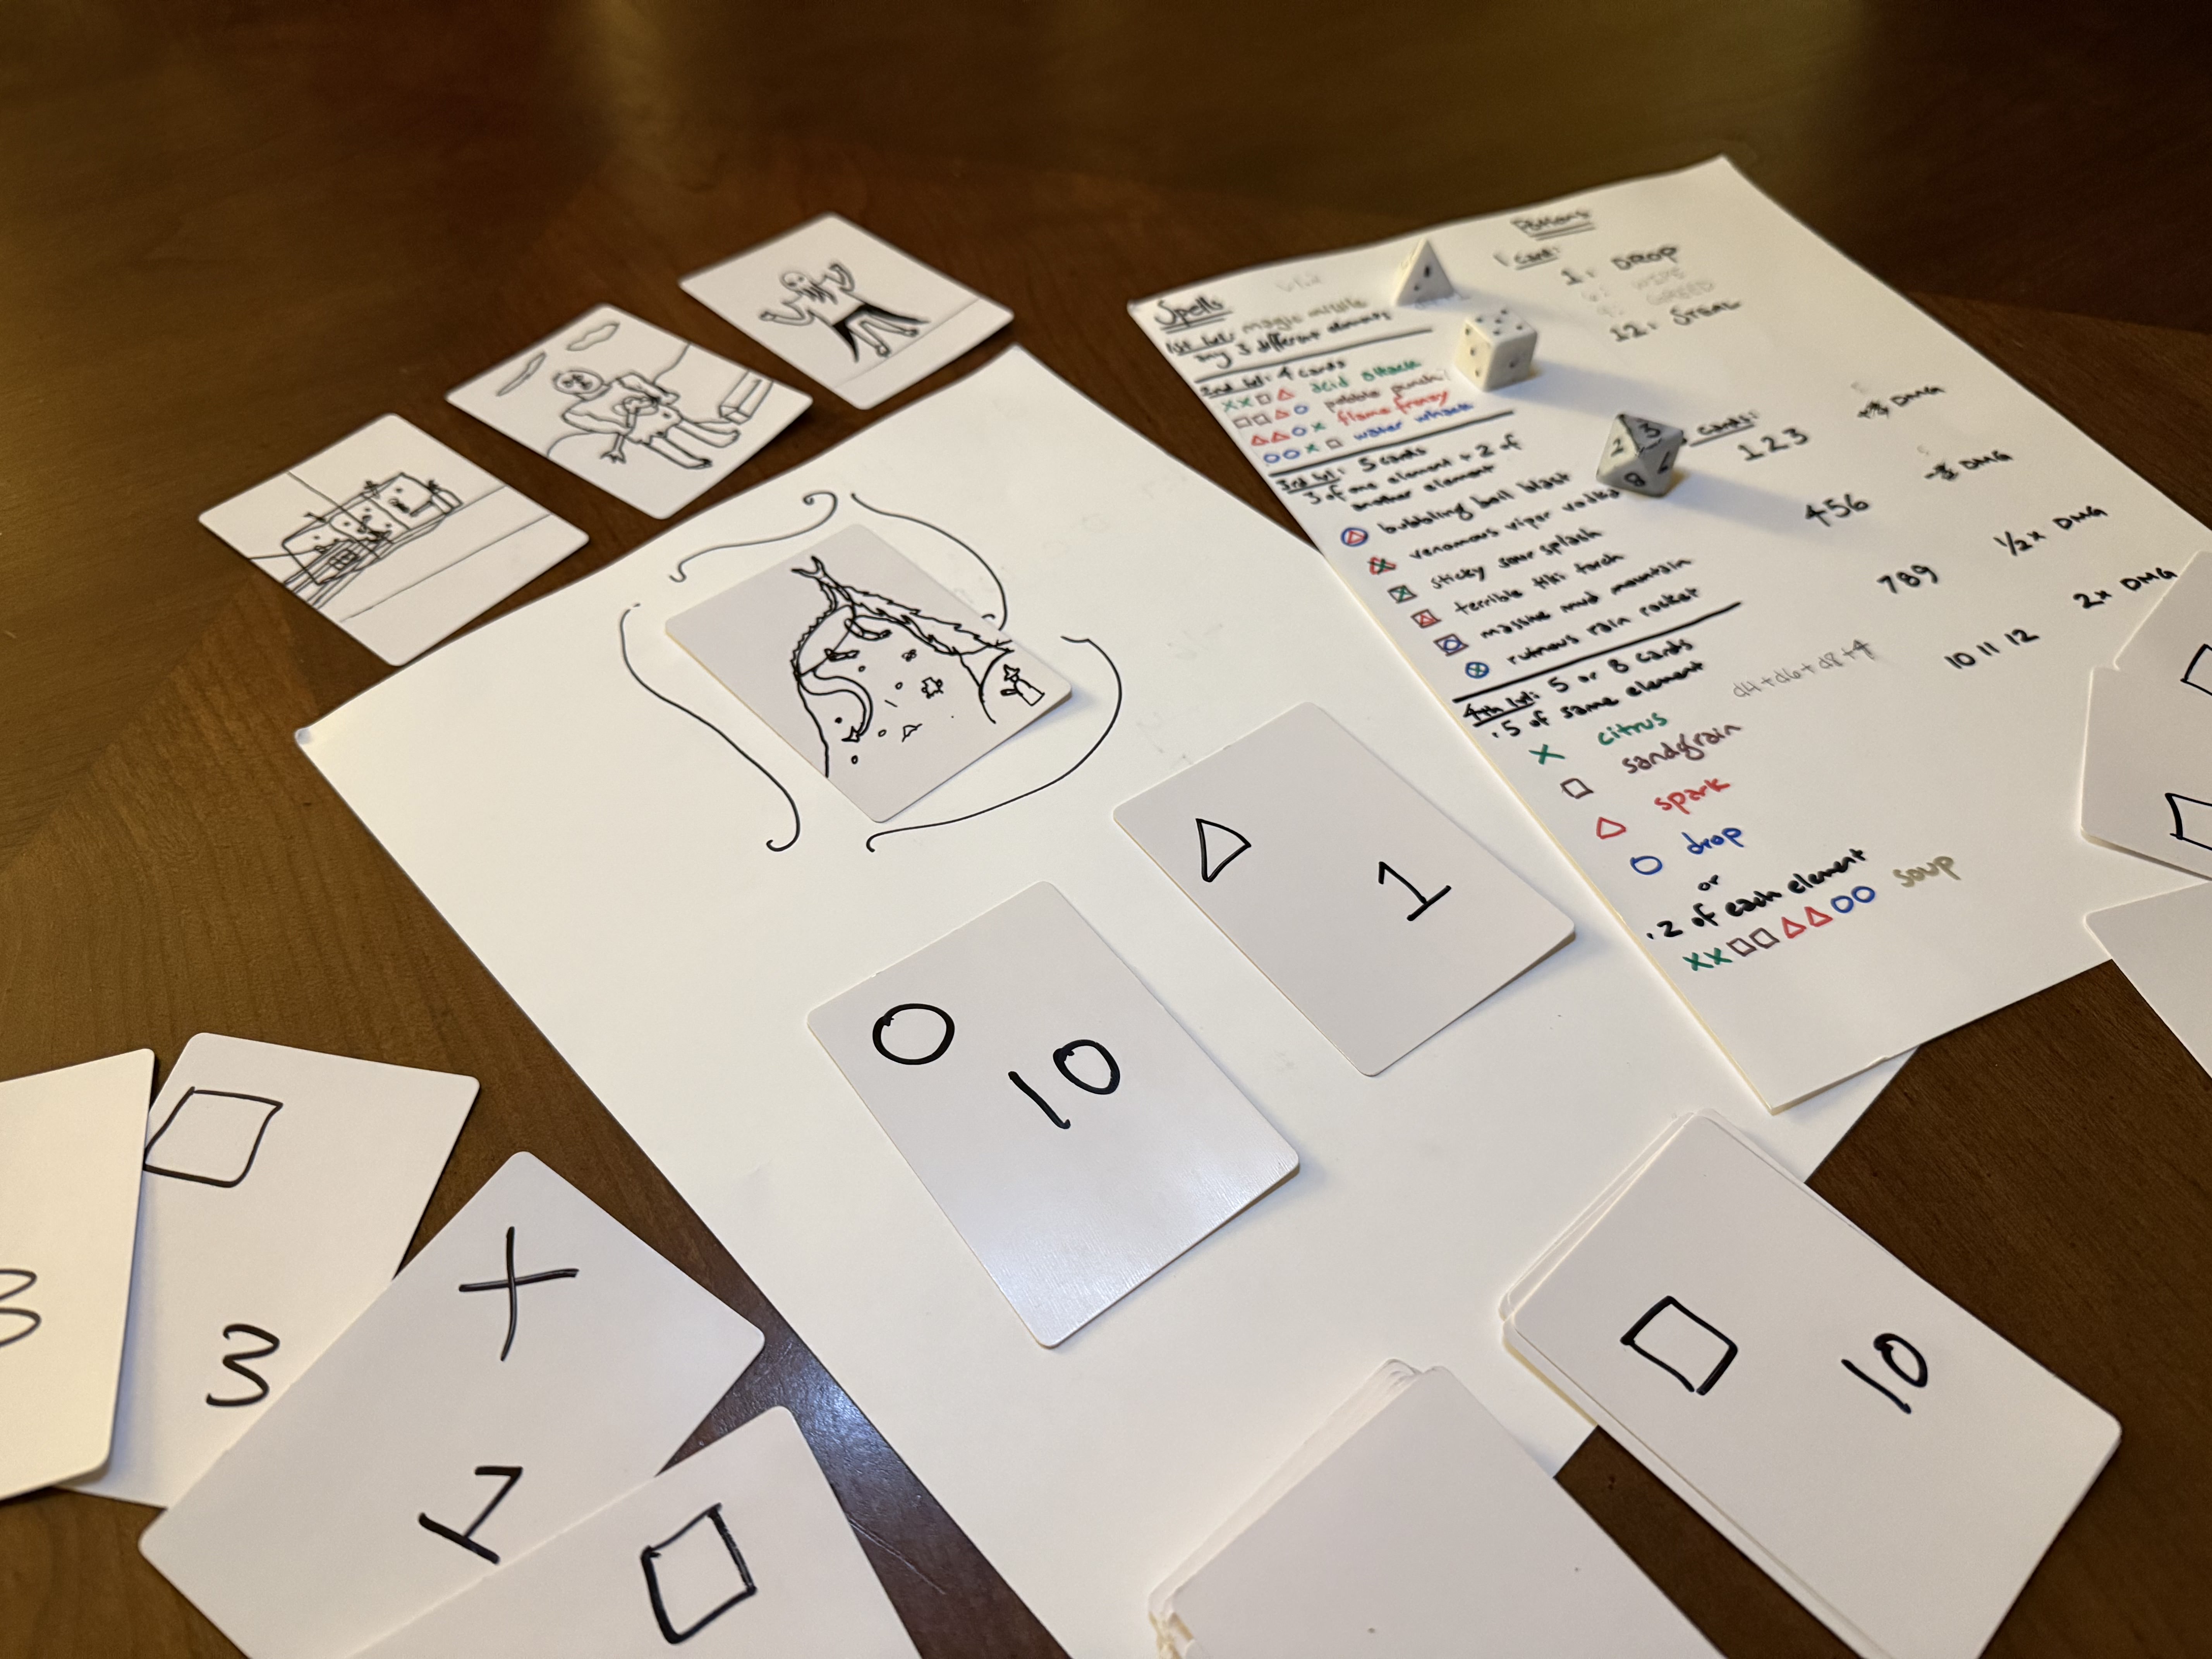 Spells
1st lvl: magic missile
any 3 different elements
2nd lvl: 4 cards
XX□△ acid attack
□□△○ pebble punch
△△○X flame frenzy
○○X□ water whack
3rd lvl: 5 cards
3 of one element + 2 of
another element
bubbling boil blast
venomous viper vodka
sticky sour splash
terrible tiki torch
massive mud mountain
ruinous rain rocket
4th lvl: 5 or 8 cards
. 5 of same element
d4+d6+d8+4
X citrus
□ sandgrain
△ spark
○ drop
or
. 2 of each element
XX□□△△○○ soup
Potions
1 card:
1: DROP
6: WIPE
9: GREED
12: STEAL
cards:
1 2 3
DMG
4 5 6
DMG
7 8 9
1/2x DMG
10 11 12
2x DMG
2 3
8
△ 1
○ 10
3
□ 3
X 1
□
□ 10